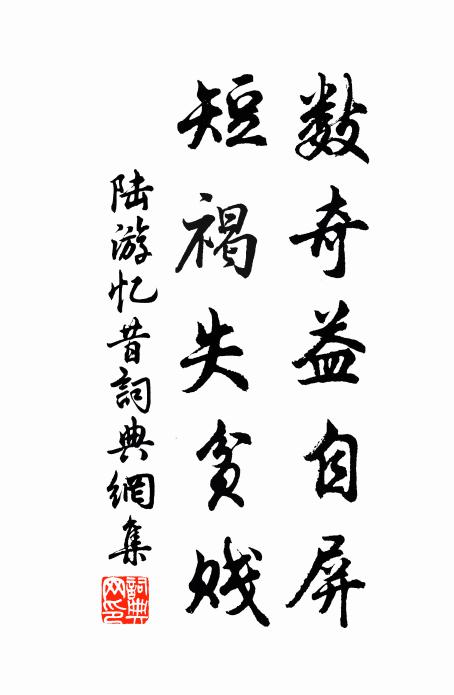 数奇益自屏
短褐失贫贱
陆游忆昔詞典網集
詞典网印